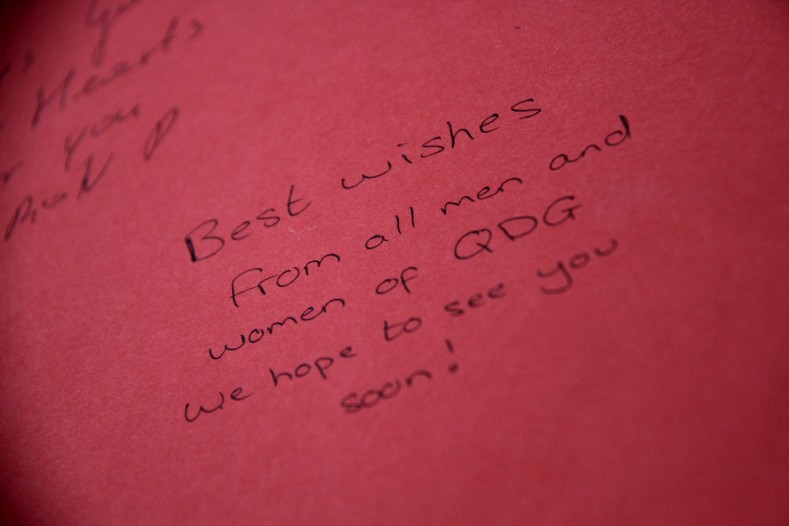 Hearts
you
Best wishes
from all men and
women of QDG
we hope to see you
soon!